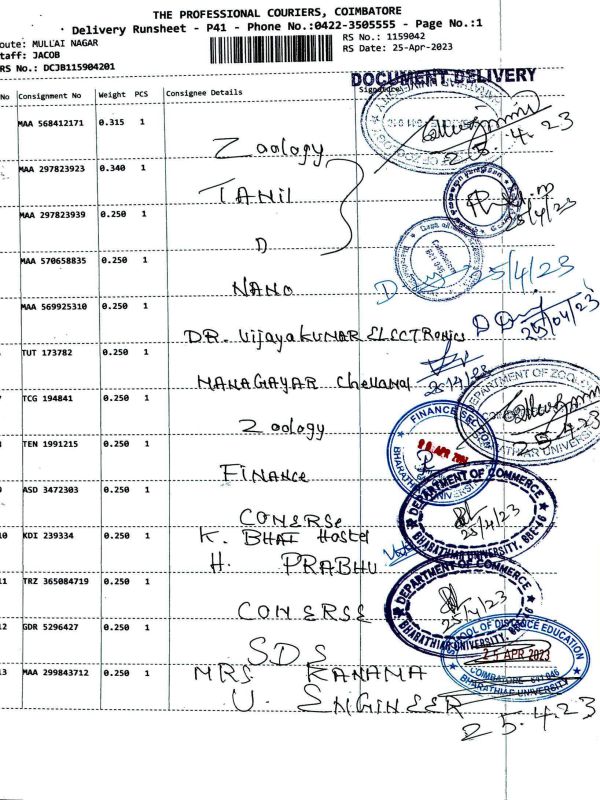 THE PROFESSIONAL COURIERS, COIMBATORE
Delivery Runsheet - P41 - Phone No.:0422-3505555 - Page No.:1
oute: MULLAI NAGAR
RS No.: 1159042
taff: JACOB
RS Date: 25-Apr-2023
RS No.: DCJB115904201
DOCUMENT DELIVERY
No Consignment No Weight PCS Consignee Details Signature
MAA 568412171 0.315 1
Zoology
25.4.23
MAA 297823923 0.340 1
TAMIL
25/4/23
MAA 297823939 0.250 1
D
MAA 570658835 0.250 1
25/4/23
NANO
MAA 569925310 0.250 1
25/04/23
DR. VijayaKUMAR ELECTRONICS
TUT 173782 0.250 1
MANAGAYAR Chellamal
DEPARTMENT OF ZOOLOGY
BHARATHIAR UNIVERSITY
TCG 194841 0.250 1
Zoology
25.4.23
FINANCE SECTION
TEN 1991215 0.250 1
FINANCE
ASD 3472303 0.250 1
DEPARTMENT OF COMMERCE
25/4/23
BHARATHIAR UNIVERSITY, CBE-46
CONERSE
10 KDI 239334 0.250 1
K. BHAI Hostel
H. PRABHU
11 TRZ 365084719 0.250 1
DEPARTMENT OF COMMERCE
25/4/23
BHARATHIAR UNIVERSITY, CBE-46
CONERSE
12 GDR 5296427 0.250 1
SCHOOL OF DISTANCE EDUCATION
25 APR 2023
COIMBATORE - 641 046
BHARATHIAR UNIVERSITY
SDS
13 MAA 299843712 0.250 1
MRS KANAMA
U. ENGINEER
25.4.23